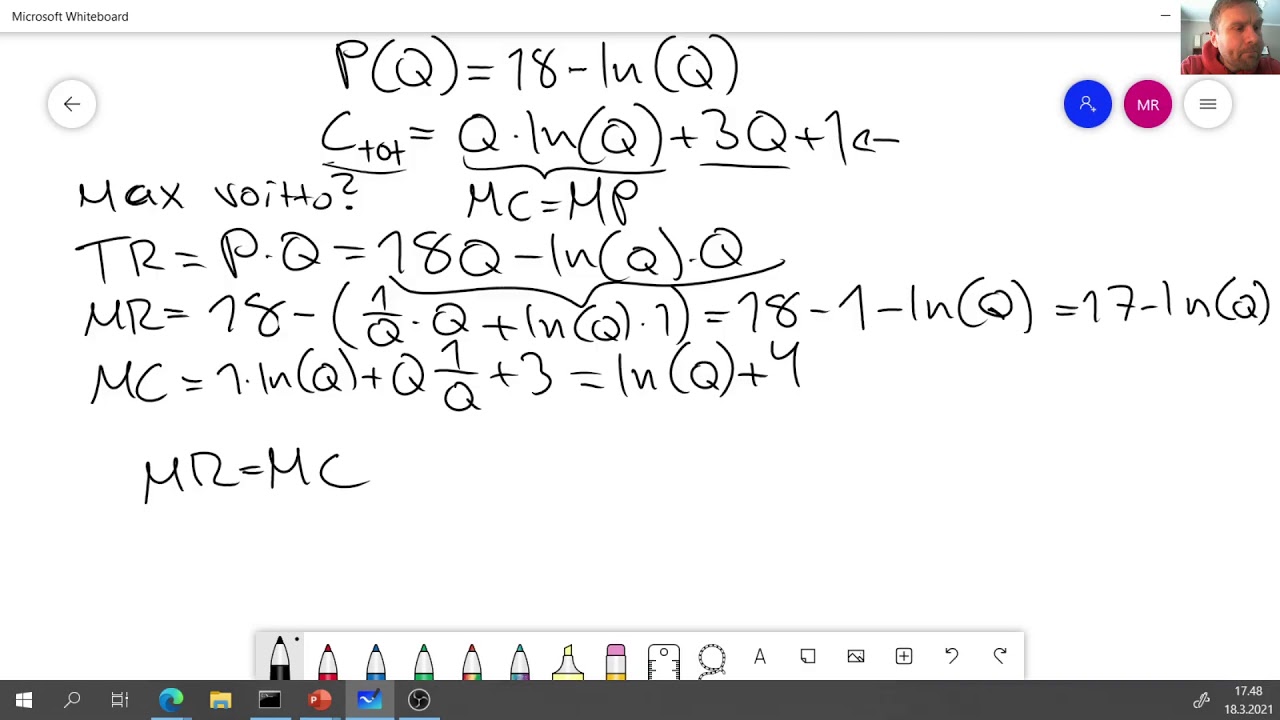 Microsoft Whiteboard
P(Q) = 18 - ln(Q)
MR
C_tot = Q · ln(Q) + 3Q + 1 ←
Max voitto?
MC = MP
TR = P · Q = 18Q - ln(Q) · Q
MR = 18 - (1/Q · Q + ln(Q) · 1) = 18 - 1 - ln(Q) = 17 - ln(Q)
MC = 1 · ln(Q) + Q 1/Q + 3 = ln(Q) + 4
MR = MC
A
17.48
18.3.2021